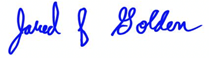 Jared F Golden